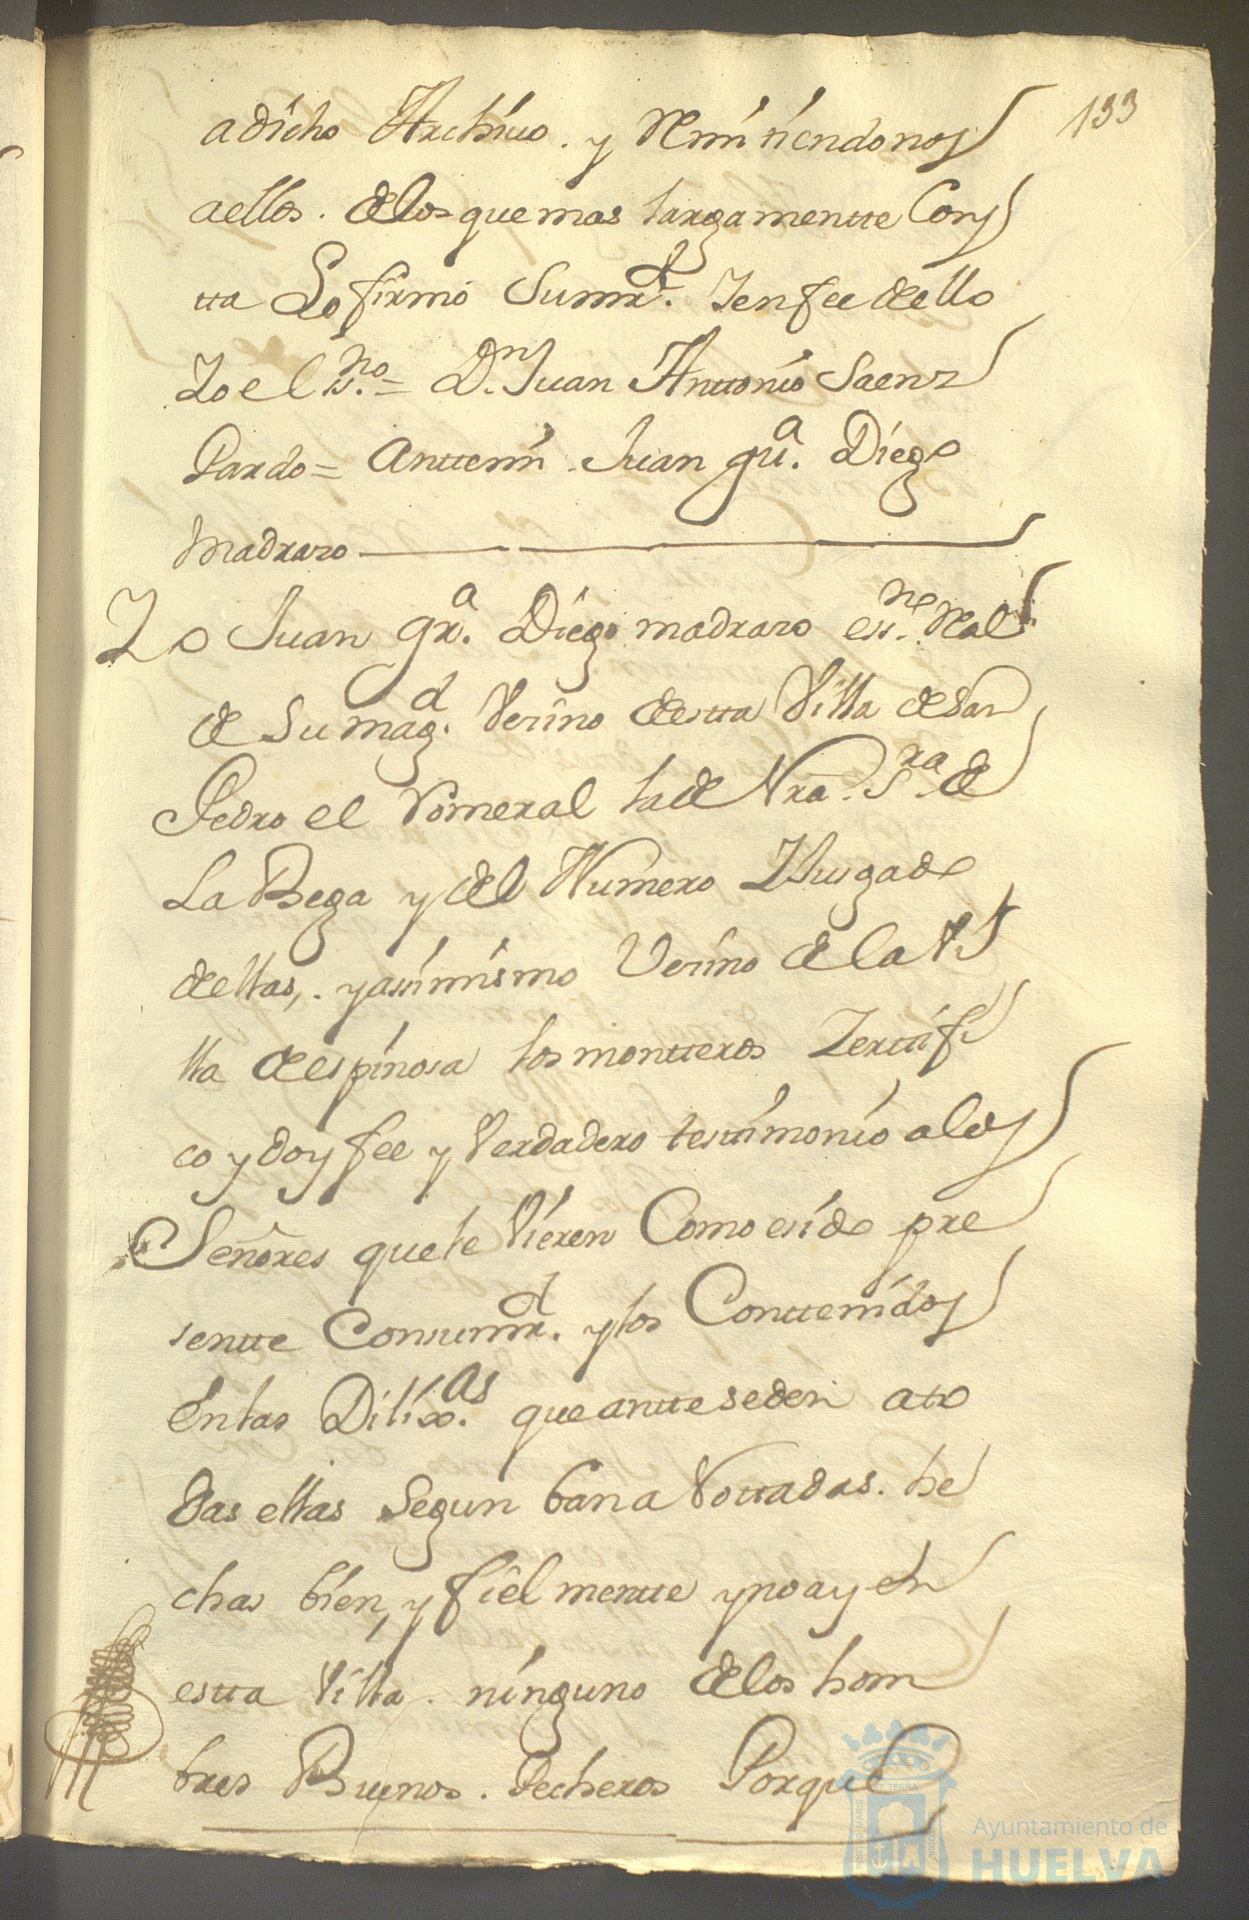 133
adícho Archiuo. y Remitiendonos
aellos. delos que mas largamentte Cons
tta Lo firmó Sumrd. Ienfee dello
Io el sno.= Dn. Juan Anttonio Saenz
Pardo= Anttemi. Juan gua. Diego
Madrazo
Io Juan gra. Diego madrazo essne. Real
de Sumagd. Vezino destta Villa de San
Pedro el Romeral la de Nra. Sra. de
La Bega y del Numero Iusgado
dellas,. y assimismo Vezino de la Vi
lla de espinosa los montteros Zerttifi
co y doy fee y Verdadero testtimonio alos
Señores que le Vieren Como e sido pre
sentte Consumrd. y los Conttenidos
En las Dilixas. que antteseden a to
das ellas Segun ban a Nottadas. he
chas bien, y fielmentte y no ay en
estta Villa. ninguno delos hom
bres Buenos. Pecheros Porque
Ayuntamiento de
HUELVA